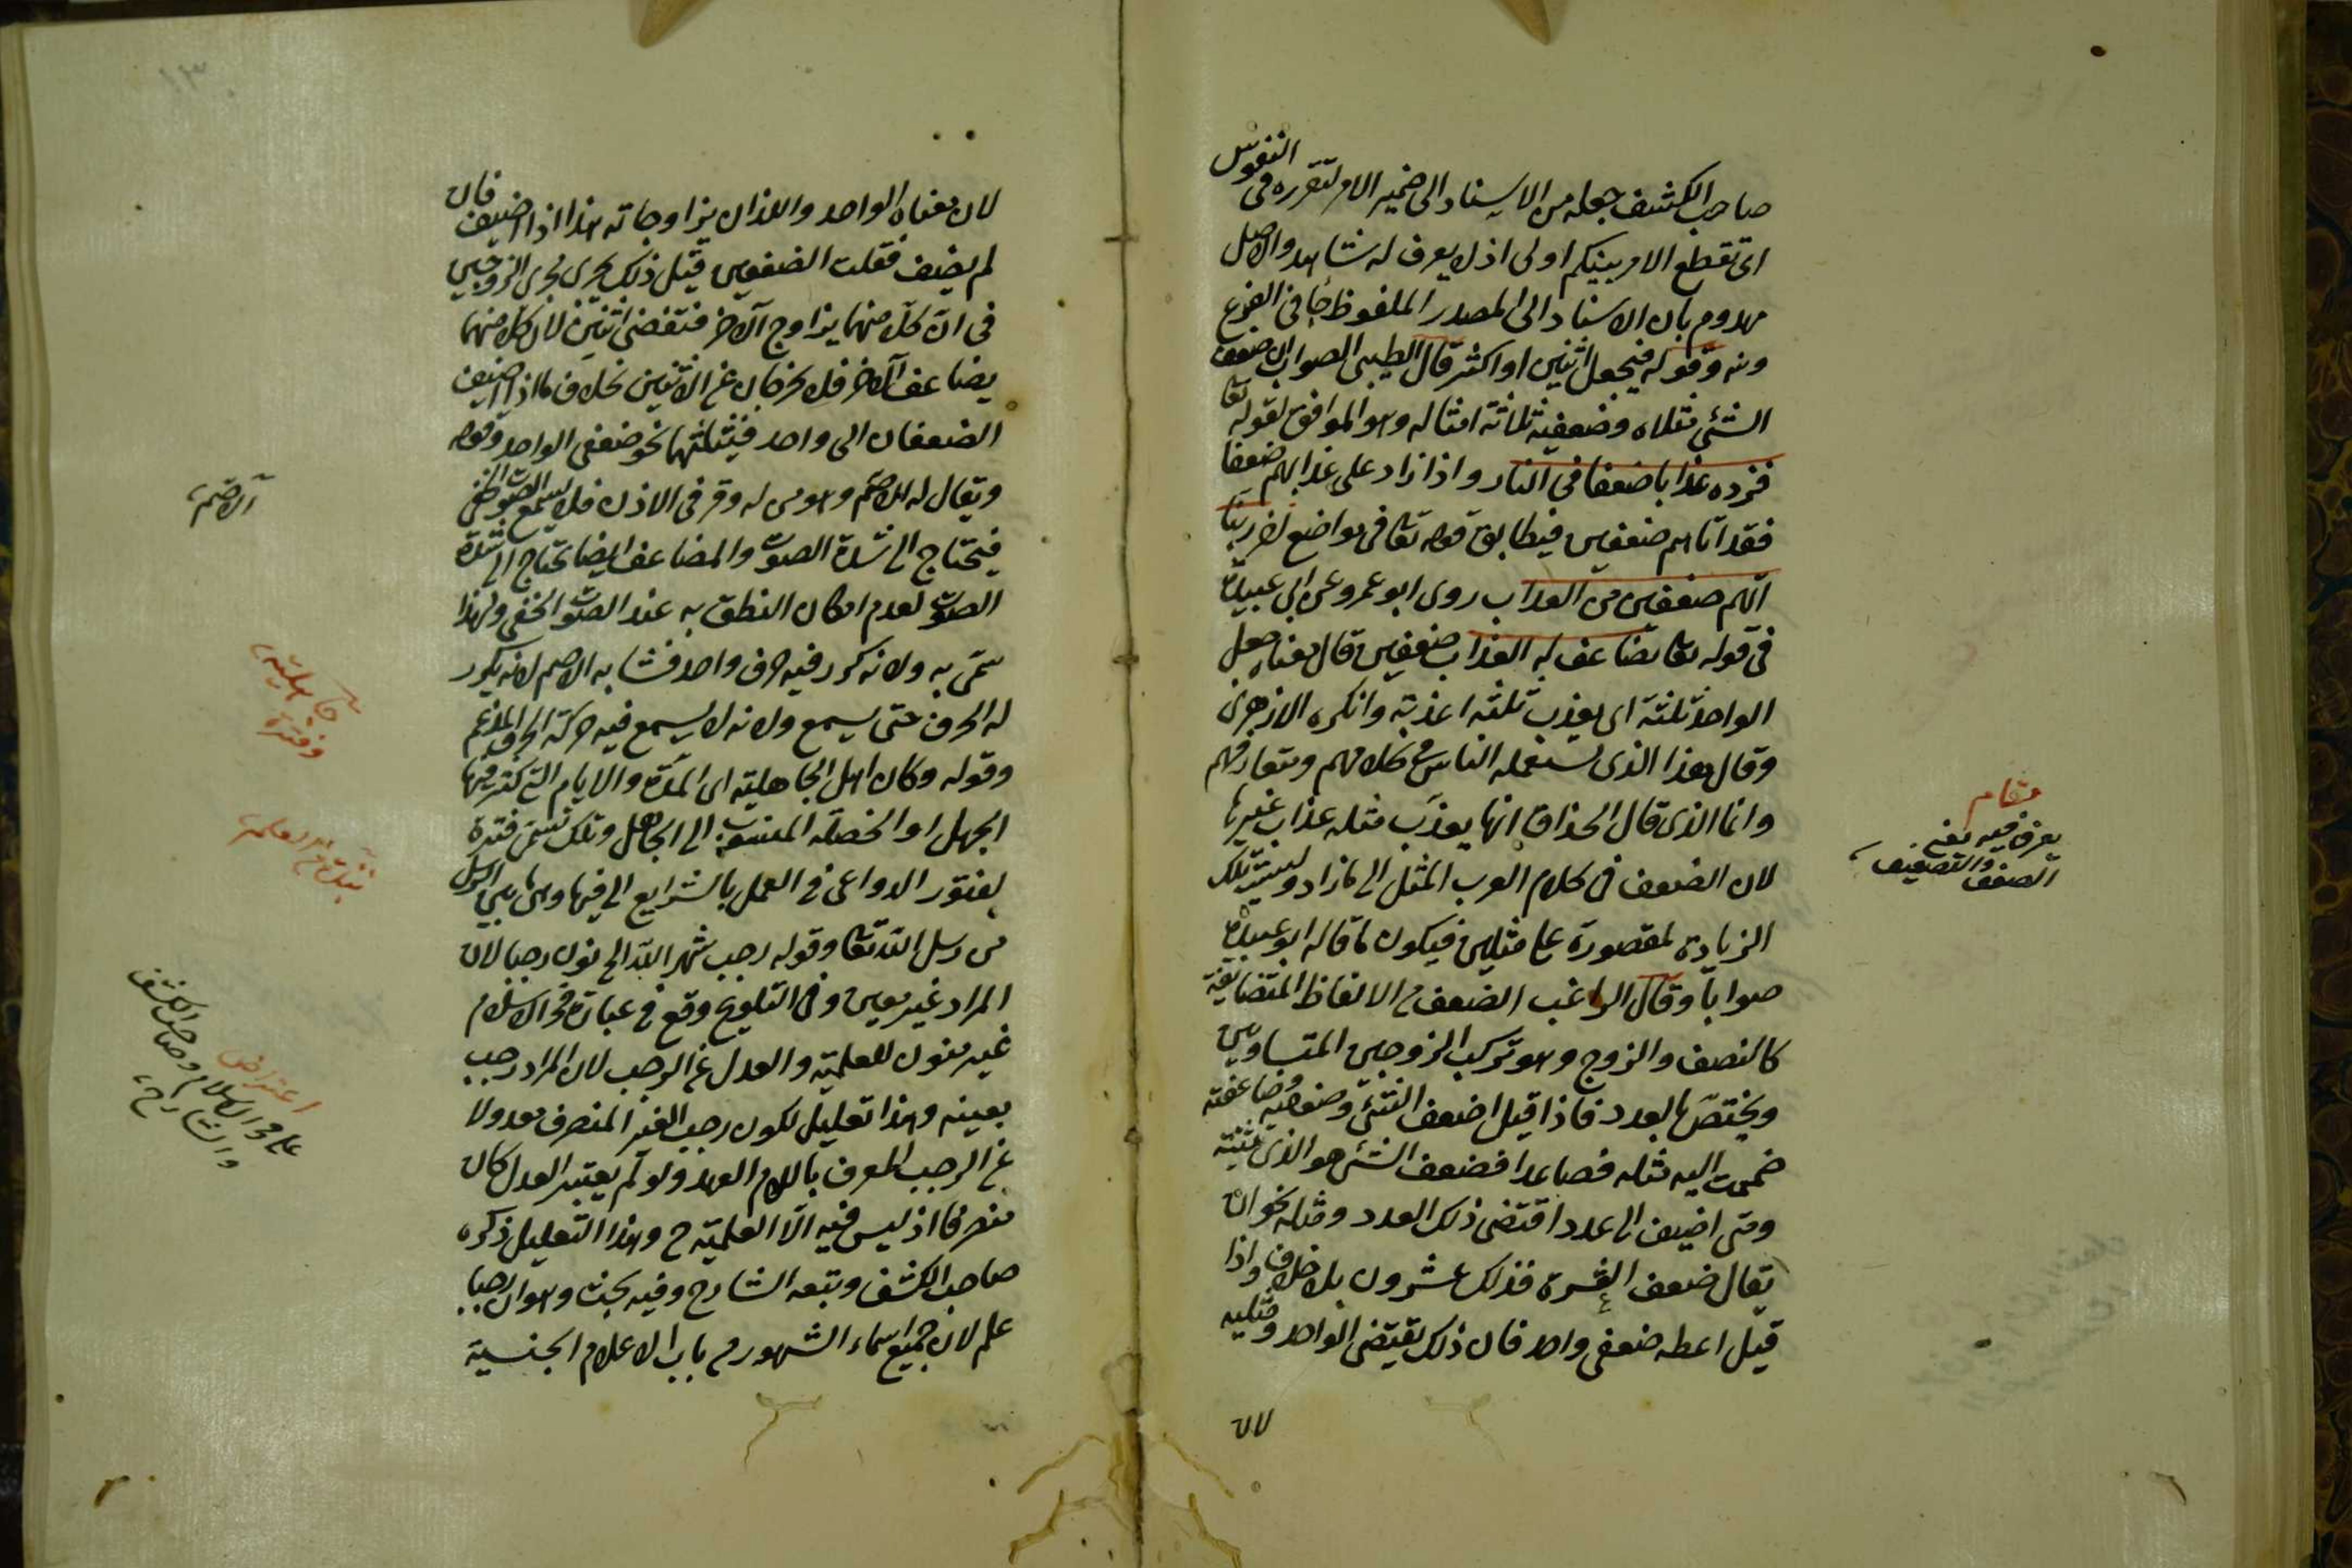 صاحب الكشف جعله من الاسناد الى ضمير الامر لتقرره فى النفوس
اى تقطع الامر بينكم اولى اذ لا يعرف له شاهد والاصل
مهدوم بان الاسناد الى المصدر الملفوظ جا فى الفرع
ومنه وقوله فيجعل اثنين او اكثر قال الطيبى الصواب ان ضعف
الشئ مثلاه وضعفيه ثلاثة امثاله وهو الموافق لقوله تعا
فزده عذابا ضعفا فى النار واذا زاد على عذابهم ضعفا
فقد آتاهم ضعفين فيطابق قوله تعا فى مواضع اخر ربنا
آتهم ضعفين من العذاب روى ابو عمرو عن ابى عبيدة
فى قوله تعا يضاعف له العذاب ضعفين قال معناه جعل
الواحد ثلثة اى يعذب ثلثة اعذبة وانكره الازهرى
وقال هذا الذى يستعمله الناس فى كلامهم ومتعارفهم
وانما الذى قال الحذاق انها يعذب مثله عذاب غيرها
لان الضعف فى كلام العرب المثل الى ما زاد وليست تلك
الزيادة لمقصورة على مثلين فيكون ما قاله ابو عبيدة
صوابا وقال الراغب الضعف من الالفاظ المتضايفة
كالنصف والزوج وهو تركب الزوجين المتساويين
ويختص بالعدد فاذا قيل اضعف الشئ وضعفته وضاعفته
ضممت اليه مثله فصاعدا فضعف الشئ هو الذى يثنيه
ومتى اضيف الى عدد اقتضى ذلك العدد ومثله نحو ان
يقال ضعف العشرة فذلك عشرون بلا خلاف واذا
قيل اعطه ضعفى واحد فان ذلك يقتضى الواحد ومثليه
لان
مقام
يعرف فيه معنى
الضعف والتضعيف
لان معناه الواحد واللذان يزاوجانه هذا اذا اضيف فان
لم يضف فقلت الضعفين قيل ذلك يجرى مجرى الزوجين
فى ان كلا منهما يزاوج الآخر فتقضى اثنين لان كل منهما
يضاعف الآخر فلا يخرجان عن الاثنين بخلاف ما اذا اضيف
الضعفان الى واحد فيثلثهما نحو ضعفى الواحد وقوله
ويقال له الاصم وهو من له وقر فى الاذن فلا يسمع الصوت الخفى
فيحتاج الى شدة الصوت والمضاعف ايضا يحتاج الى شدة
الصوت لعدم امكان النطق به عند الصوت الخفى ولهذا
سمى به ولانه كرر فيه حرف واحد فشابه الاصم لانه يكرر
له الحرف حتى يسمع ولانه لا يسمع فيه حركة الحرف المدغم
وقوله وكان اهل الجاهلية اى المدة والايام التى كثر فيها
الجهل او الخصلة المنسوبة الى الجاهل وتلك تسمى فترة
لفتور الدواعى فى العمل بالشرايع اليى فيها وهى بين الرسل
من رسل الله تعا وقوله رجب شهر الله الخ نون رجبا لان
المراد غير معين وفى التلويح وقع فى عبارة فخر الاسلام
غير منون للعلمية والعدل عن الرجب لان المراد رجب
بعينه وهذا تعليل لكون رجب الغير المنصرف معدولا
عن الرجب المعرف باللام العهد ولو لم يعتبر العدل كان
منصرفا اذ ليس فيه الا العلمية ح وهذا التعليل ذكره
صاحب الكشف وتبعه الشارح وفيه بحث وهو ان رجبا
علم لان جميع اسماء الشهور من باب الاعلام الجنسية
الاصم
جاهلية
وفترة
اعتراض
على فخر الاسلام وصاحب الكشف
والشارح
١٣